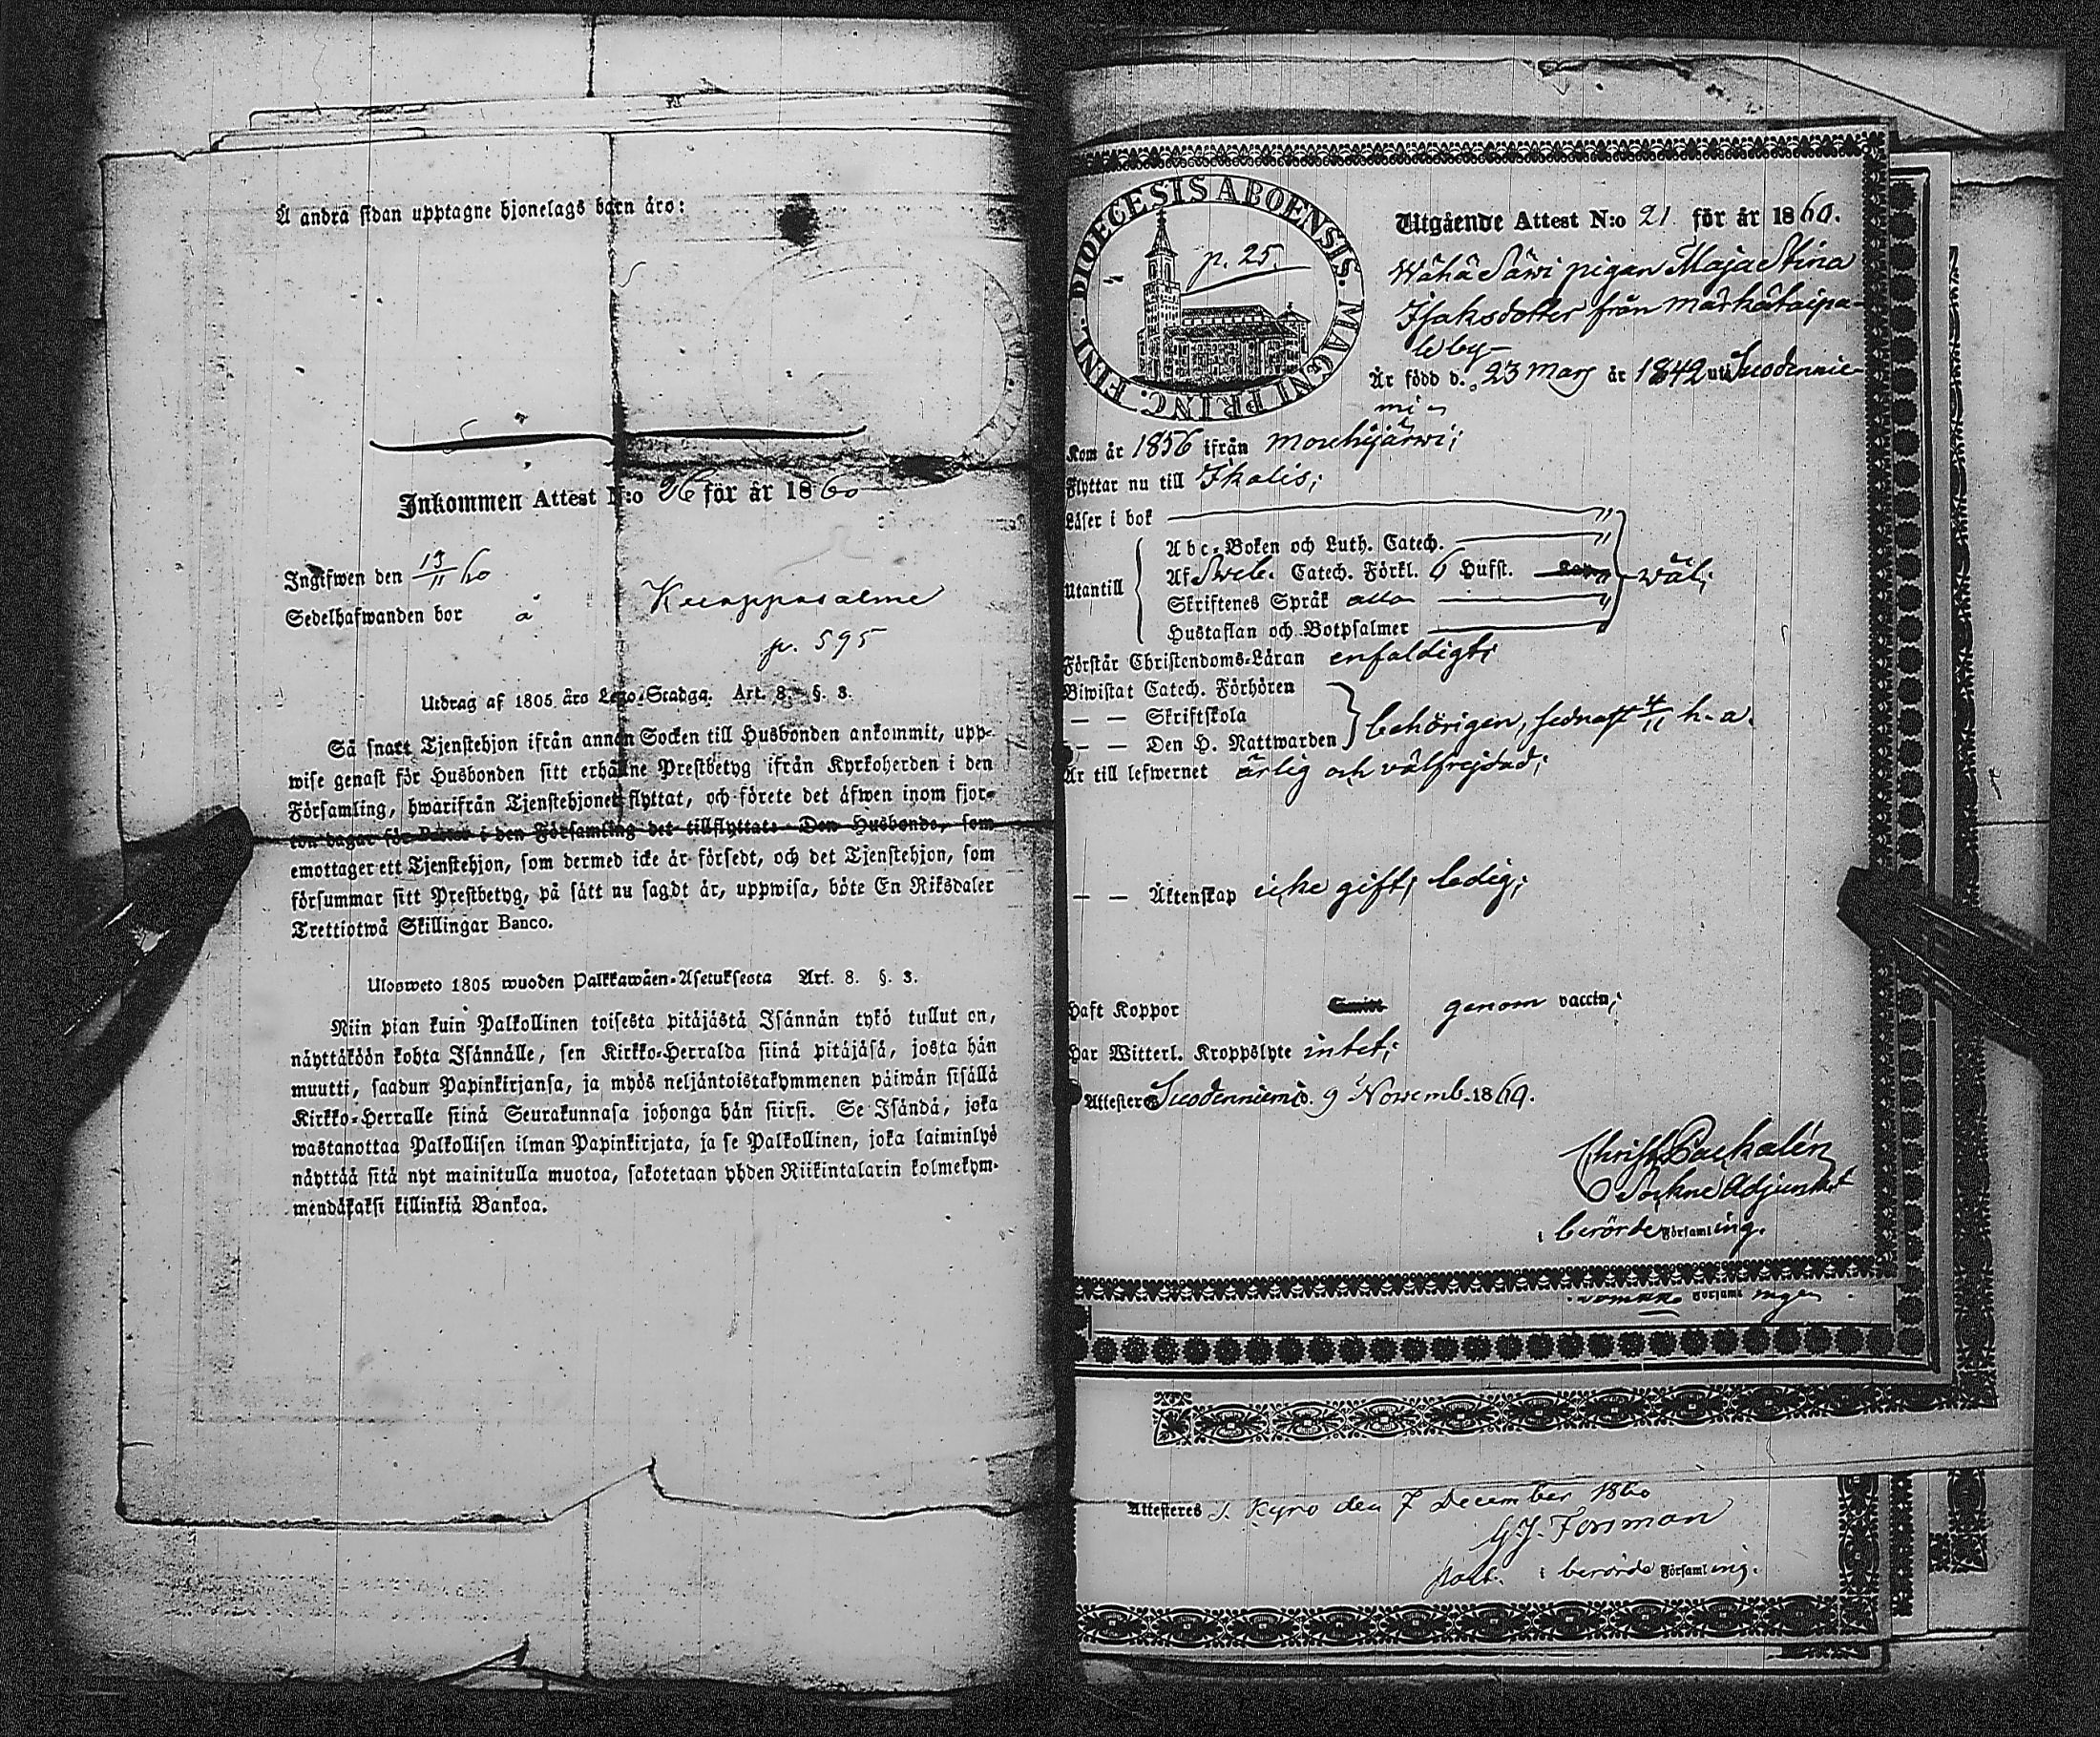 Å andra sidan upptagne hjonelags barn äro:
Inkommen Attest N:o 26 för år 1860
Ingifwen den 13/11 60
Sedelhafwanden bor å Kuoppasalme
p. 595
Utdrag af 1805 års Lego-Stadga. Art. 8. §. 3.
Så snart Tjenstehjon ifrån annan Socken till Husbonden ankommit, upp-
wise genast för Husbonden sitt erhållne Prestbetyg ifrån Kyrkoherden i den
Församling, hwarifrån Tjenstehjonet flyttat, och förete det äfwen inom fjor-
ton dagar för Pastor i den Församling det tillflyttat. Den Husbonde, som
emottager ett Tjenstehjon, som dermed icke är försedt, och det Tjenstehjon, som
försummar sitt Prestbetyg, på sätt nu sagdt är, uppwisa, böte En Riksdaler
Trettiotwå Skillingar Banco.
Ulosweto 1805 wuoden Palkkawäen-Asetuksesta Art. 8. §. 3.
Niin pian kuin Palkollinen toisesta pitäjästä Isännän tykö tullut on,
näyttäköön kohta Isännälle, sen Kirkko-Herralda siinä pitäjäsä, josta hän
muutti, saadun Papinkirjansa, ja myös neljäntoistakymmenen päiwän sisällä
Kirkko-Herralle siinä Seurakunnasa johonga hän siirsi. Se Isändä, joka
wastanottaa Palkollisen ilman Papinkirjata, ja se Palkollinen, joka laiminlyö
näyttää sitä nyt mainitulla muotoa, sakotetaan yhden Riikintalarin kolmekym-
mendäkaksi killinkiä Bankoa.
DIOECESIS ABOENSIS. MAGNI PRINC. FINL.
p. 25.
Utgående Attest N:o 21 för år 1860.
Wähä Säwi pigan Maja Stina
Isaksdotter från Märkätaipa-
le by
Är född d. 23 Mars år 1842 uti Suodennie-
mi
Kom år 1856 ifrån Mouhijärwi;
Flyttar nu till Ikalis;
Läser i bok "
Utantill
Abc-Boken och Luth. Catech. "
Af Sweb. Catech. Förkl. 6 Hufst. " wäl;
Skriftenes Språk alla "
Hustaflan och Botpsalmer "
Förstår Christendoms-Läran enfaldigt;
Biwistat Catech. Förhören
— — Skriftskola
— — Den H. Nattwarden behörigen, sednast 4/11 h. a.
Är till lefwernet ärlig och välfrejdad;
— — Äktenskap icke gift; ledig;
Haft Koppor genom vaccin;
Har Witterl. Kroppslyte intet;
Attesteras Suodenniemi d. 9 Novemb. 1860.
Sockne Adjunkt
i berörde Församling.
Församl ingen
Attesteres i Kyro den 7 December 1860
G J. Forsman
i berörde Församl ing.